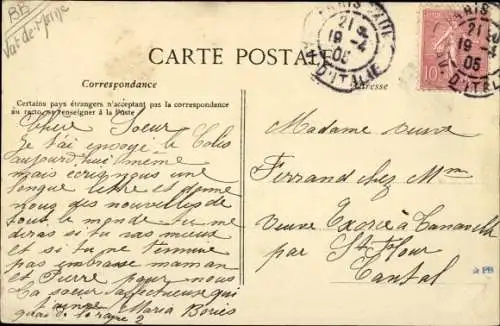 BB
Val de Marne
PARIS XIII
21
19-4
05
AV. D'ITALIE
PARIS
21
19-4
05
AV. D'ITALIE
10
CARTE POSTALE
Correspondance
Adresse
Certains pays étrangers n'acceptant pas la correspondance
au recto, se renseigner à la Poste
Chère Soeur
Je t'ai envoyé le Colis
aujourd'hui même
mais écris nous une
longue lettre et donne
nous des nouvelles de
tout le monde tu me
diras si tu vas mieux
et si tu ne t'ennuie
pas embrasse maman
et Pierre pour nous
ta soeur affectueuse qui
t'aime Maria Bories
quai de la rapée 2
Madame veuve
Ferrand chez Mm
veuve
par St Flour
Cantal
PB